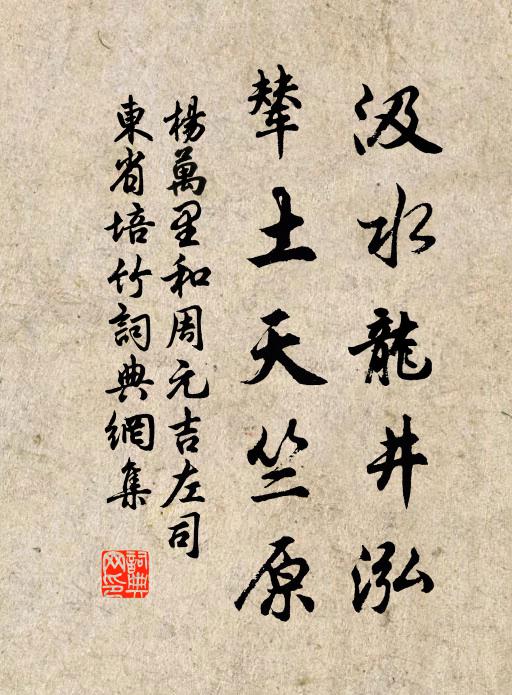 汲水龍井泓
輦土天竺原
楊萬里和周元吉左司
東省培竹詞典網集
詞典
网印